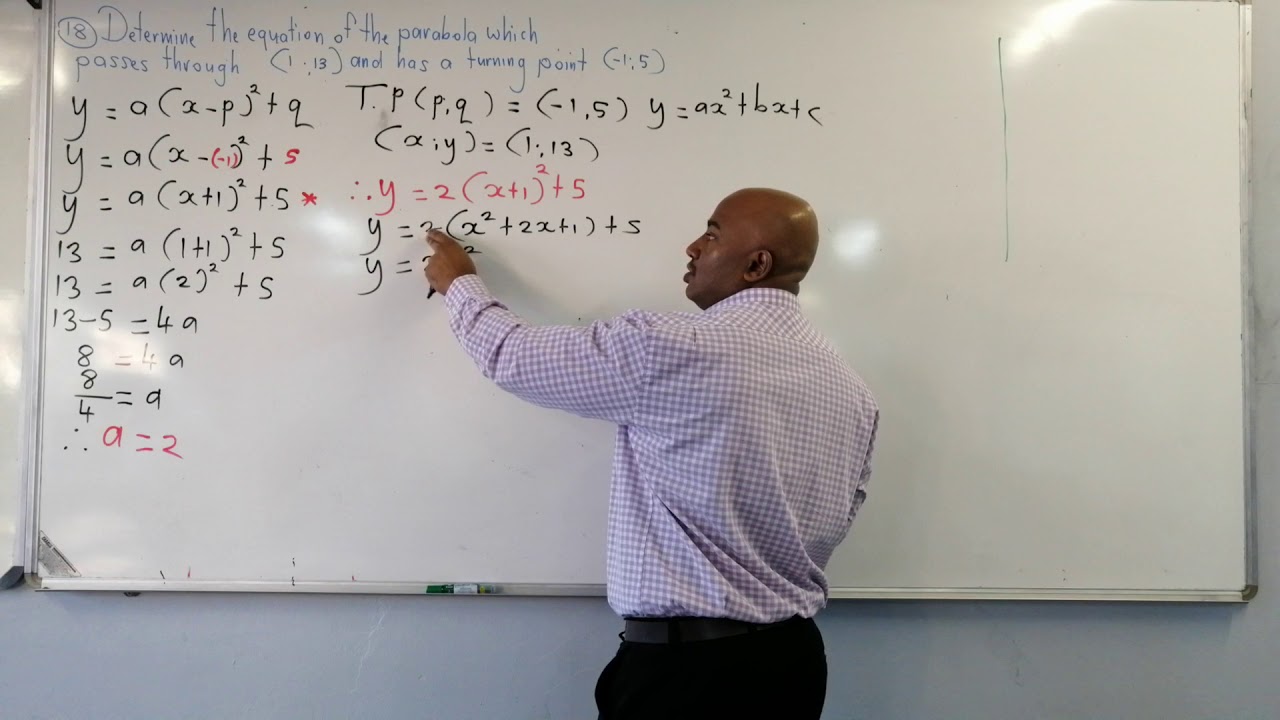 18 Determine the equation of the parabola which
passes through (1;13) and has a turning point (-1;5)
y = a(x-p)² + q
y = a(x-(-1))² + 5
y = a(x+1)² + 5 *
13 = a(1+1)² + 5
13 = a(2)² + 5
13-5 = 4a
8 = 4a
8/4 = a
∴ a = 2
T.P(p,q) = (-1,5) y = ax²+bx+c
(x;y) = (1;13)
∴ y = 2(x+1)² + 5
y = 2(x²+2x+1)+5
y =